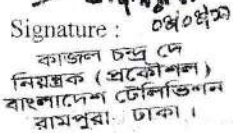 Signature :
কাজল চন্দ্র দে
নিয়ন্ত্রক (প্রকৌশল)
বাংলাদেশ টেলিভিশন
রামপুরা ঢাকা।